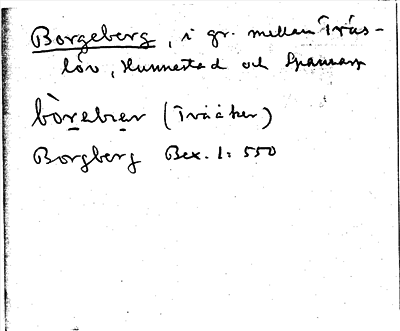 Borgeberg, i gr. mellan Trås-
löv, Hunnestad och Spannarp
bòrebær (Tvååker)
Borgberg Bex. 1: 550